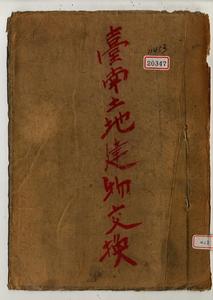 臺南土地建物交換
20347